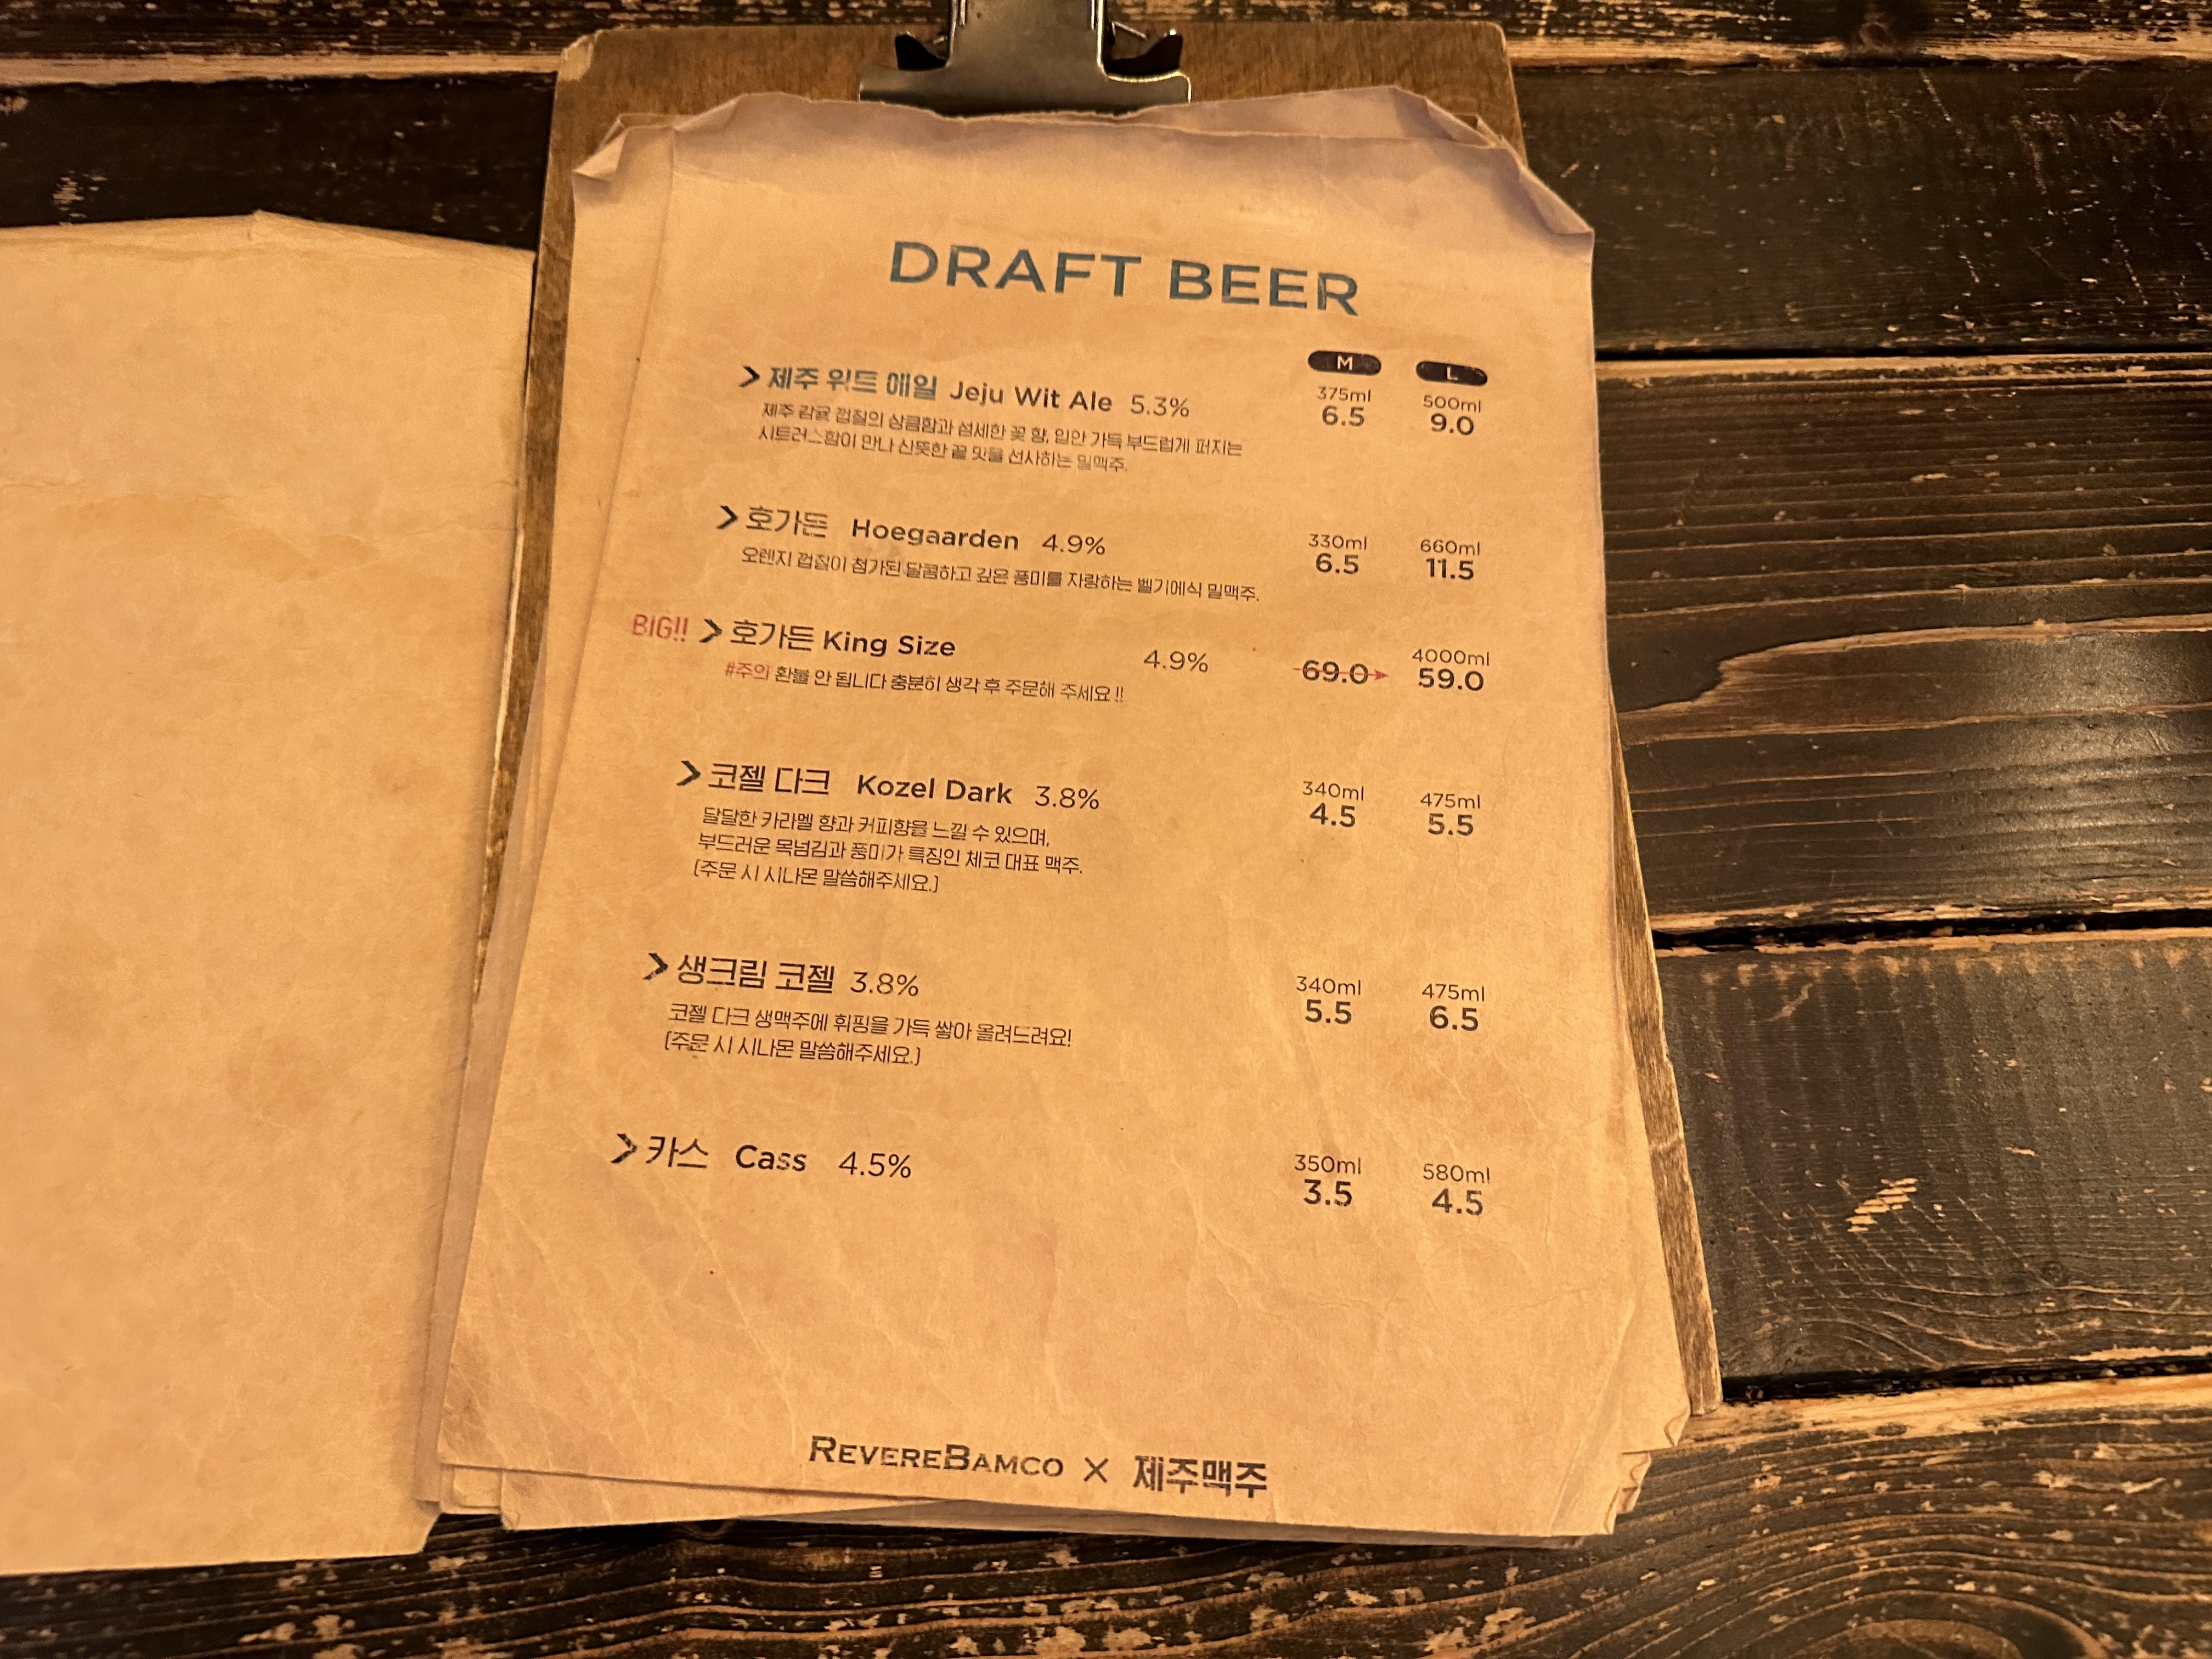 DRAFT BEER
M L
제주 위트 에일 Jeju Wit Ale 5.3% 375ml 500ml
6.5 9.0
제주 감귤 껍질의 상큼함과 섬세한 꽃 향, 입안 가득 부드럽게 퍼지는
시트러스함이 만나 산뜻한 끝 맛을 선사하는 밀맥주.
호가든 Hoegaarden 4.9% 330ml 660ml
6.5 11.5
오렌지 껍질이 첨가된 달콤하고 깊은 풍미를 자랑하는 벨기에식 밀맥주.
BIG!! 호가든 King Size 4.9% 4000ml
69.0 59.0
#주의 환불 안 됩니다 충분히 생각 후 주문해 주세요!!
코젤 다크 Kozel Dark 3.8% 340ml 475ml
4.5 5.5
달달한 카라멜 향과 커피향을 느낄 수 있으며,
부드러운 목넘김과 풍미가 특징인 체코 대표 맥주.
[주문 시 시나몬 말씀해주세요.]
생크림 코젤 3.8% 340ml 475ml
5.5 6.5
코젤 다크 생맥주에 휘핑을 가득 쌓아 올려드려요!
[주문 시 시나몬 말씀해주세요.]
카스 Cass 4.5% 350ml 580ml
3.5 4.5
REVEREBAMCO X 제주맥주